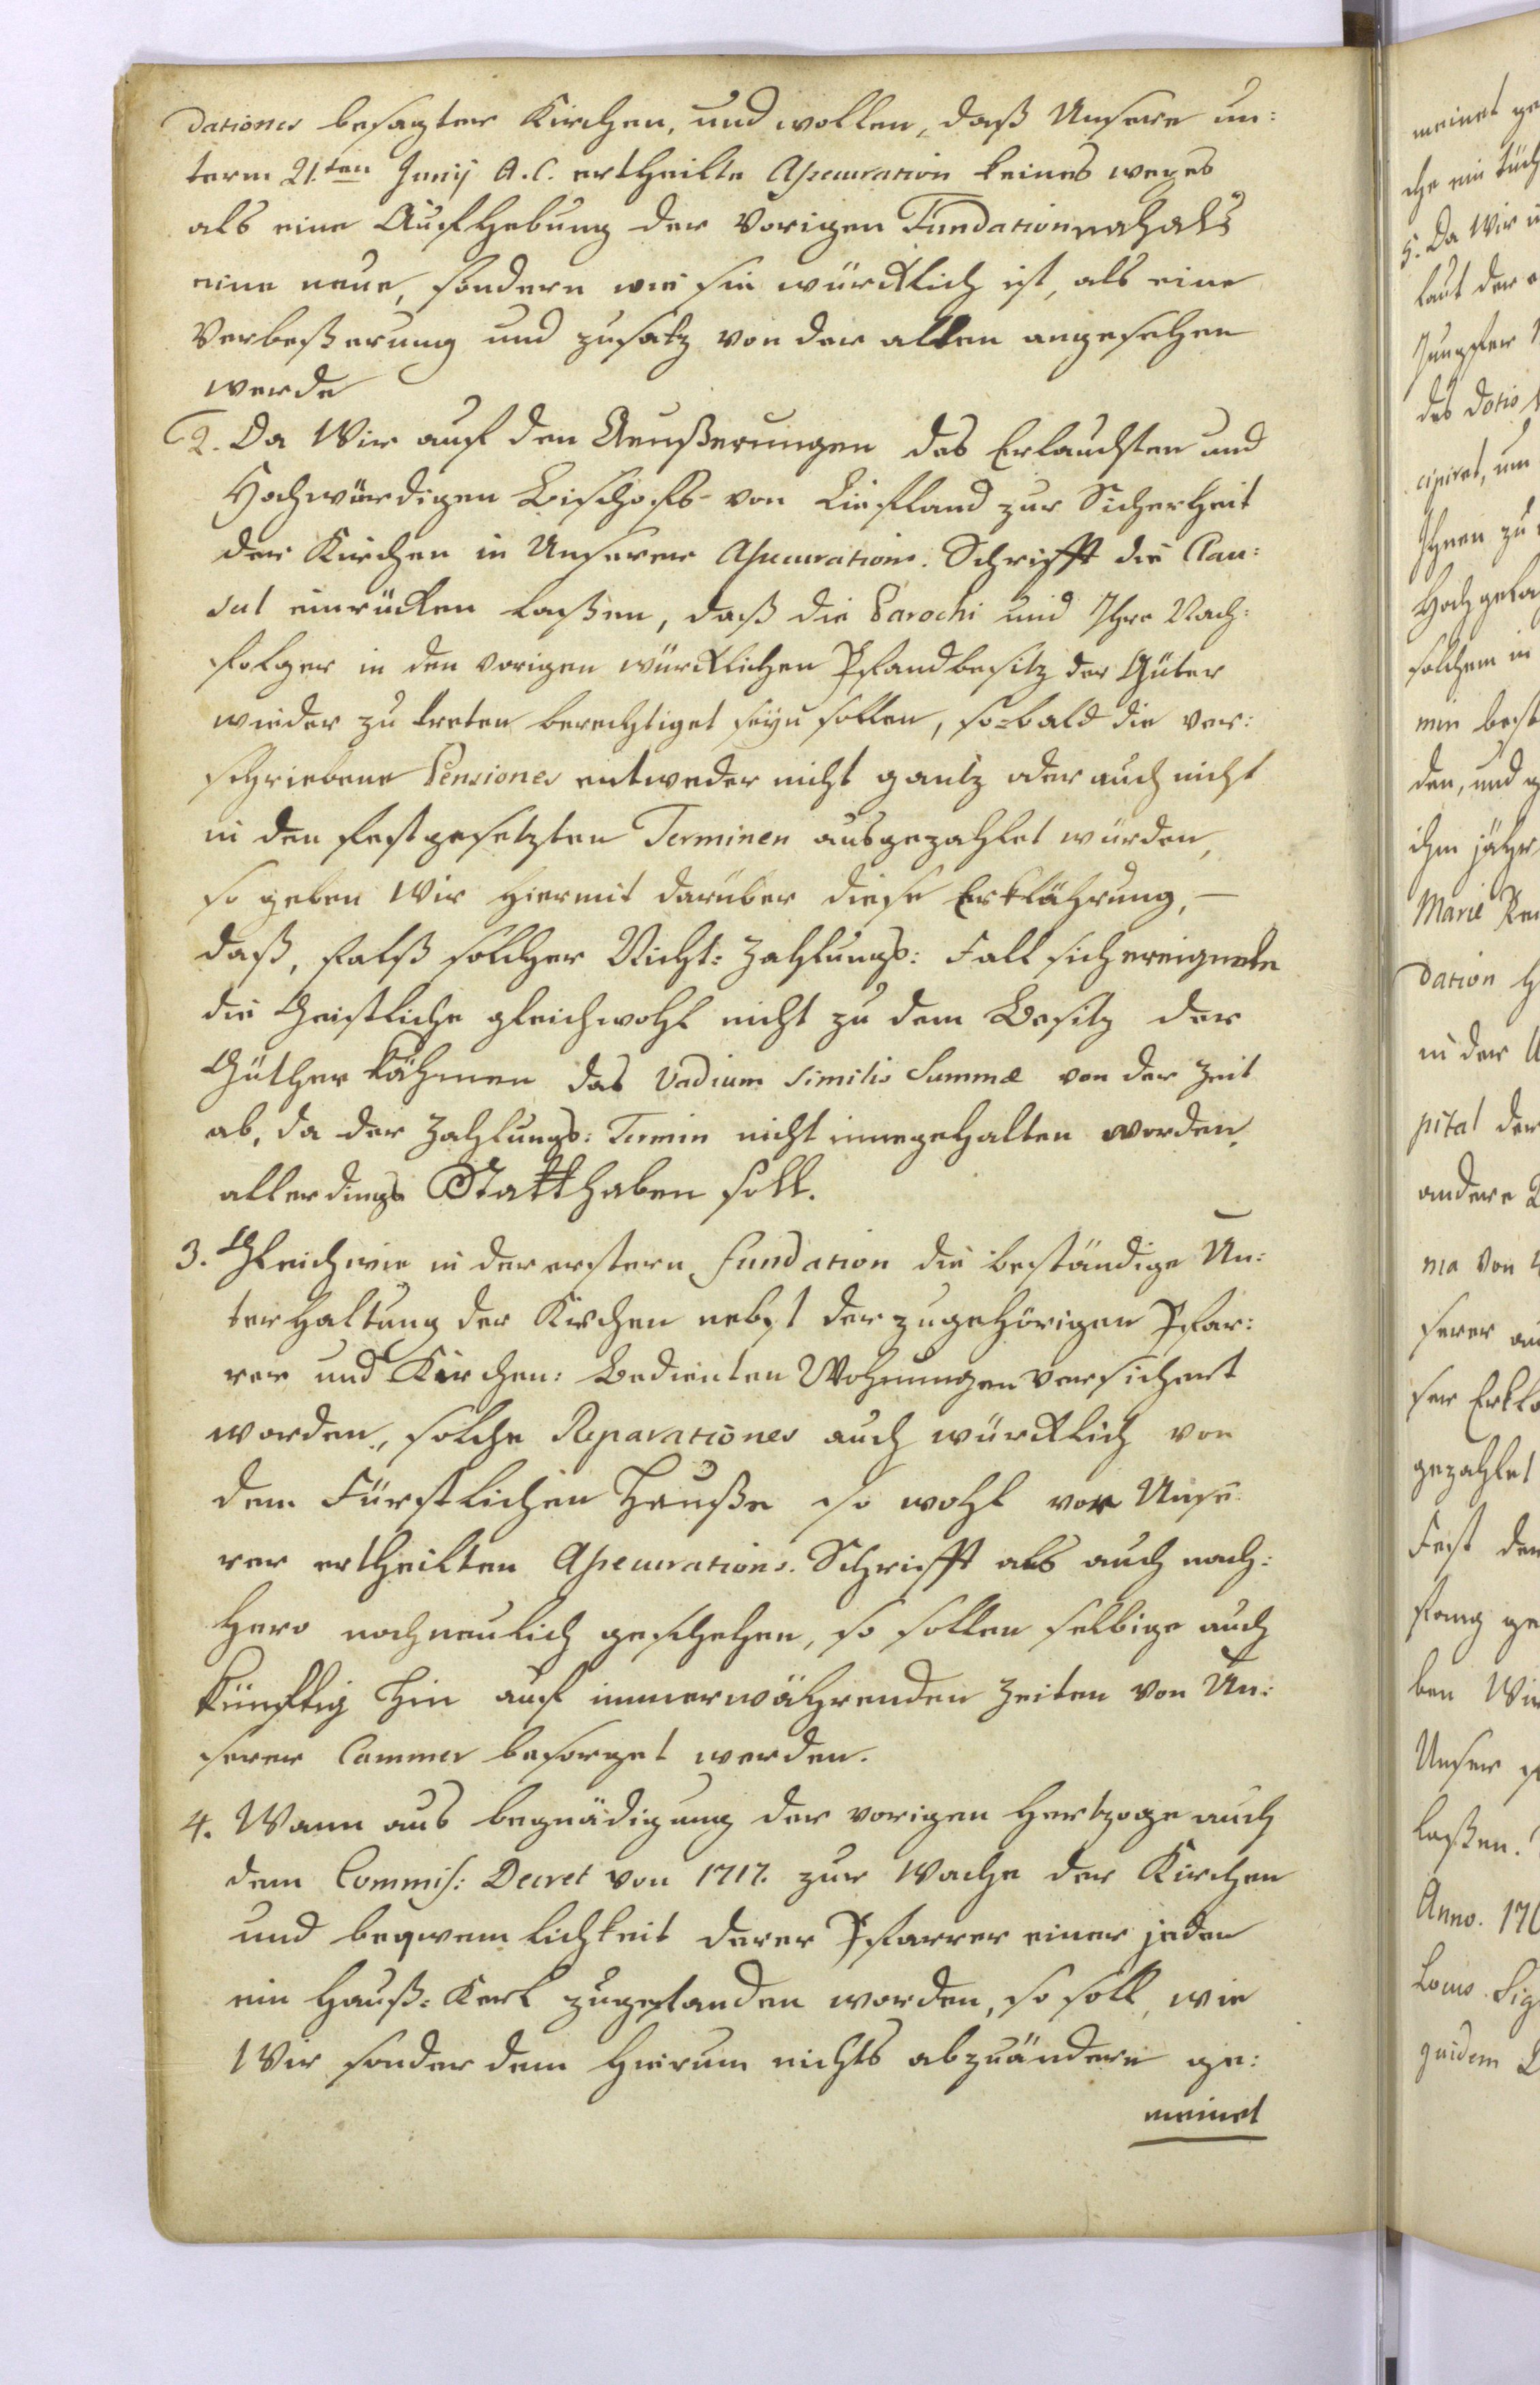 dationes besagter Kirchen, und wollen, daß Unsere un:
term 21.ten Junij A. C. ertheilte Assecuration keines weges
als eine Aufhebung der vorigen Fundation noch als
eine neue, sondern wie sie würcklich ist, als eine
Verbeßerung und zusatz von der alten angesehen
werde
2. Da Wir auf den Aeußerungen des Erlauchten und
Hochwürdigen Bischofs von Liefland zur Sicherheit
der Kirchen in Unserer Assecurations. Schrifft die Clau:
sul einrücken laßen, daß die Parochi und Ihre Nach:
folger in den vorigen würcklichen Pfandbesitz der Güter
wieder zu treten berechtiget seyn sollen, so-bald die ver:
schriebene Pensiones entweder nicht gantz oder auch nicht
in den festgesetzten Terminen ausgezahlet würden,
so geben Wir hiermit darüber diese Erklährung, —
daß, falß solcher Nicht: Zahlungs: Fall sich ereignete
die Geistliche gleichwohl nicht zu dem Besitz der
Güther kähmen das Vadium similis Summæ von der Zeit
ab, da der Zahlungs: Termin nicht innegehalten worden,
allerdings Statt haben soll.
3. Gleichwie in der erstern fundation die beständige Un:
terhaltung der Kirchen nebst der zugehörigen Pfar:
rer und Kirchen: Bedienten Wohnungen versichert
worden, solche Reparationes auch würcklich von
dem Fürstlichen Hauße so wohl vor Unse:
rer ertheilten Assecurations. Schrifft als auch nach:
hero noch neulich geschehen, so sollen selbige auch
künfftig hin auf immerwährenden Zeiten von Un:
serer Cammer besorget werden.
4. Wann aus begnädigung der vorigen Hertzoge auch
dem Commiss: Decret von 1717. zur Wache der Kirchen
und beqwemlichkeit derer Pfarrer einer jeden
ein Hauß: Kerl zugestanden worden, so soll, wie
Wir sonder dem hierum nichts abzuändern ge:
meinet
meinet
5. Da Wir
laut der
Jungfer
des Dotis
cipiret, um
Ihnen zu
solchem in
den, und
ihm jähr
Marie
dation
in der
pital der
andere
ma von
serer
gezahlet
Fest der
fang ge
ben Wir
Unser
laßen.
Anno.
Locus Sig
quidem